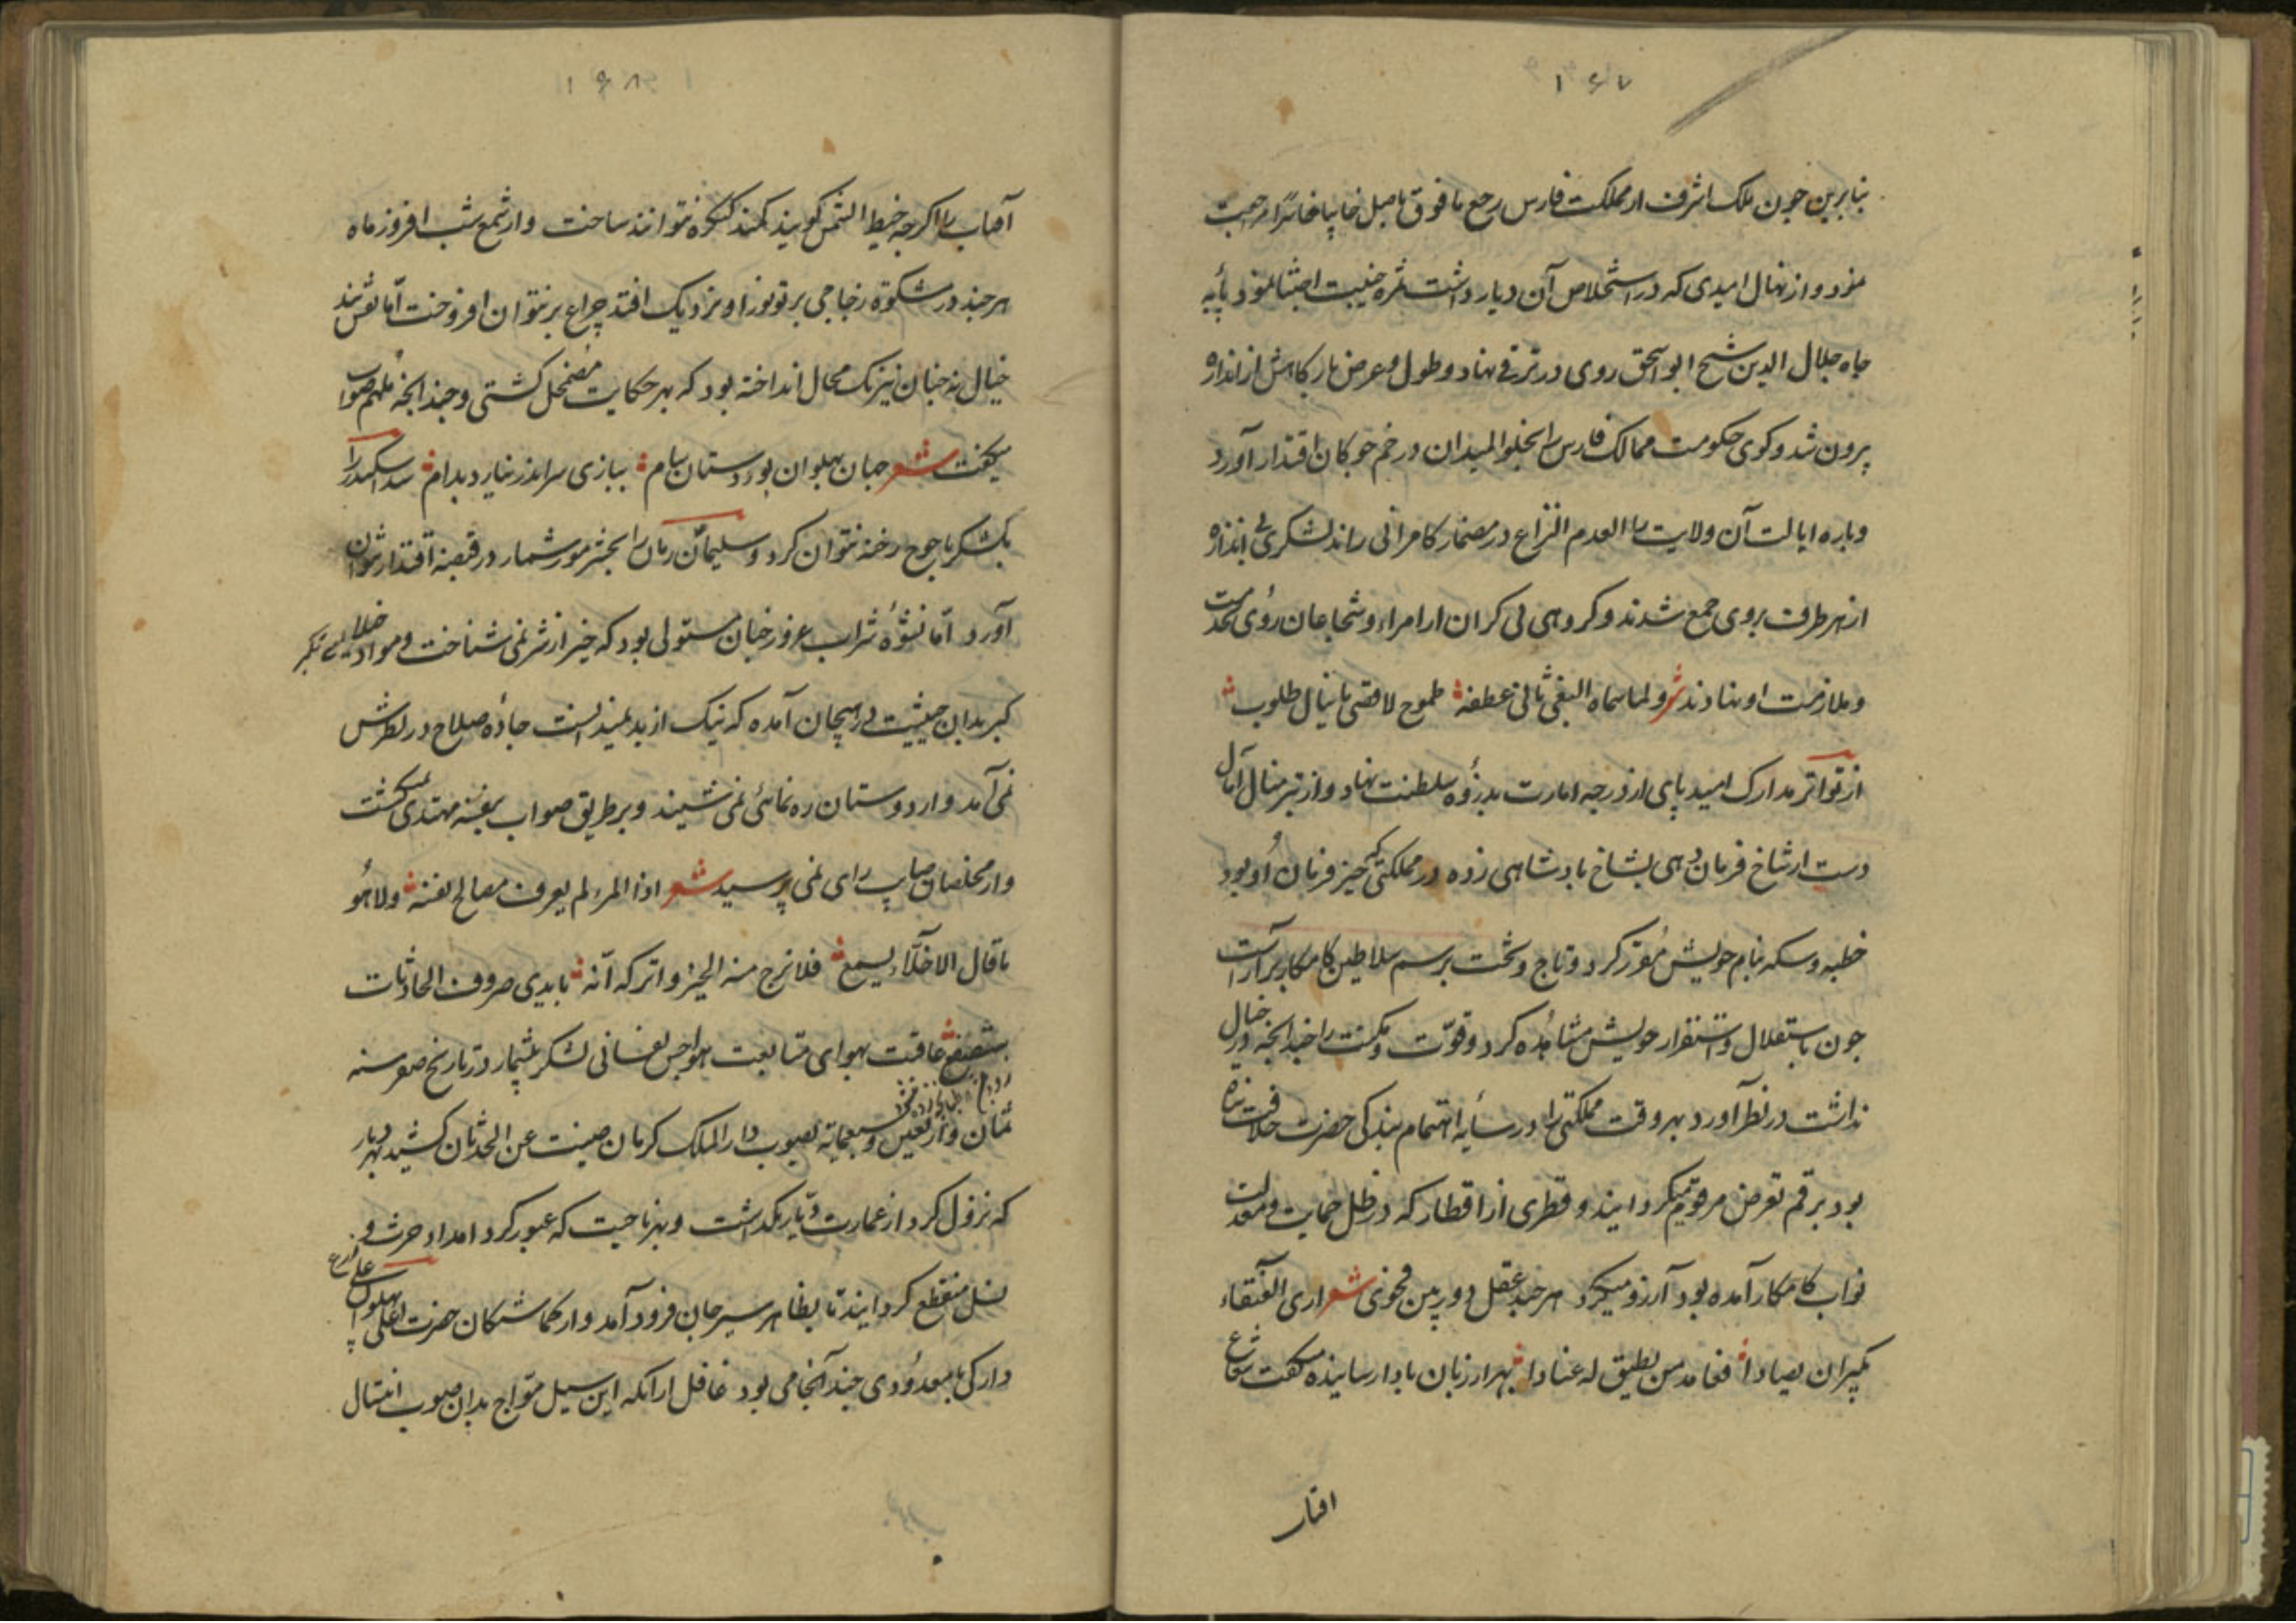 ۱۶۷
بنابرین چون ملک اشرف از مملکت فارس رجع ما فوق نامل خایبا خاسرا مراجعت
نمود و از نهال امیدی که در استخلاص آن دیار داشت ثمره خیبت اجتنا نمود پایه
جاه جلال الدین شیخ ابواسحق روی در ترقی نهاد و طول و عرض بارکاهش از اندازه
بیرون شد و کوی حکومت ممالک فارس را بخلو المیدان در خم چوکان اقتدار آورد
و باره ایالت آن ولایت را لعدم النزاع در مضمار کامرانی راند لشکری بی اندازه
از هر طرف بروی جمع شدند و کروهی بی کران از امراء و شجاعان روی بخدمت
و ملازمت او نهادند شعر ولما سماه البغی ثانی عطفه طموح لاقصی ما ینال طلوب
از تواتر مدارک امید پای از درجه امارت بذروه سلطنت نهاد و از تیسر منال آمال
دست از شاخ فرمان دهی بشاخ بادشاهی زده در مملکتی که حیز فرمان او بود
خطبه و سکه بنام خویش مقرر کرد و تاج و تخت برسم سلاطین کامکار بیاراست
چون باستقلال و استقرار خویش مشاهده کرد و قوت و مکنت را چندانچه در خیال
نداشت در نظر آورد بهر وقت مملکتی را در سایه اهتمام بندکی حضرت خلافت پناه
بود برقم تعرض مرقوم میکردانید و قطری از اقطار که در ظل حمایت و معدلت
نواب کامکار آمده بود آرزو میکرد هر چند عقل دوربین فحوی شعر اری العنقاء
یکبران یصادا فعاند من یطیق له عنادا بهزار زبان بادا رسانیده میکفت شعاع
افتاب
۱۶۸
آفتاب را اکرچه خیط الشمس کویند کمند کنکره نتوانند ساخت و از شمع شب افروز ماه
هر چند در مشکوة زجاجی پرتو نور او نزدیک افتد چراغ بر نتوان افروخت اما نقش بند
خیال نه چنان نیرنک محال انداخته بود که بهر حکایت مضمحل کشتی و چندانچه ملهم صواب
میکفت شعر جهان پهلوان پور دستان سام ببازی سر اندر نیارد بدام سد اسکندر را
بلشکر یاجوج رخنه نتوان کرد و سلیمان زمان را بحشر مور شمار در قبضه اقتدار نتوان
آورد اما نشوه شراب غرور چنان مستولی بود که خیر از شر نمی شناخت و مواد خیلای تکبر
کبر بدان حیثیت در هیجان آمده که نیک از بد نمیدانست جاده صلاح در نظرش
نمی آمد و از دوستان ره نمائی نمی شنید و بر طریق صواب بنفسه مهتدی نمیکشت
و از مخلصان صایب رای نمی پرسید شعر اذا المرء لم یعرف مصالح نفسه ولا هو
ما قال الاخلاء یسمع فلا ترج منه الخیر و اترکه انه بایدی صروف الحادثات
ستصفع عاقبت بهوای متابعت هواجس نفسانی لشکر بیشمار در تاریخ صفر سنه
ثمان و اربعین و سبعمایه بصوب دار الملک کرمان صینت عن الحدثان کشید بهر دیار
که نزول کرد از عمارت دیار نکذاشت و بهر ناحیت که عبور کرد امداد حرث و زرع
نسل منقطع کردانید تا بظاهر سیرجان فرود آمد و از کماشتکان حضرت اعلی پهلوان علی
دارکی با معدودی چند آنجا می بود غافل از آنکه این سیل مواج بدان صوب انثال